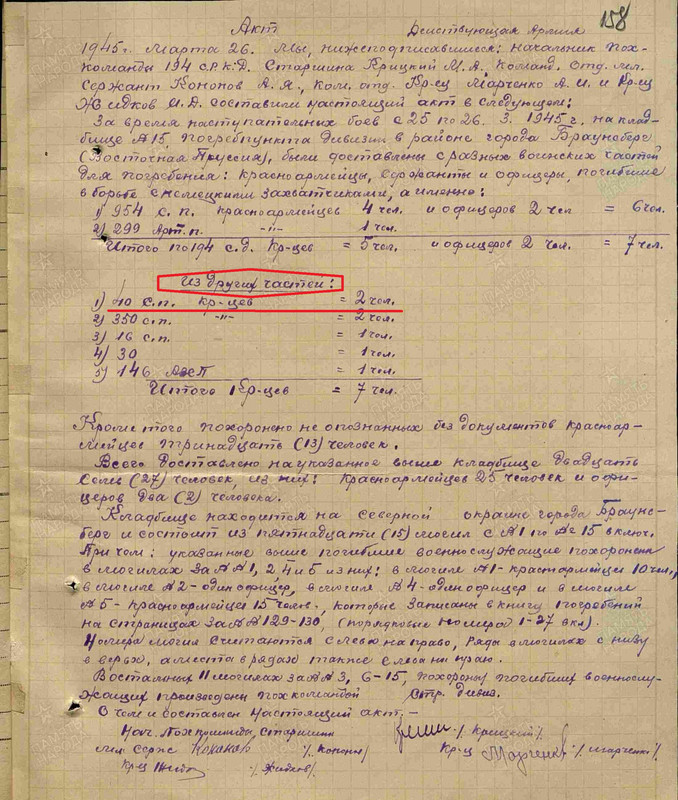 158
Акт Действующая Армия
1945г. Марта 26. Мы, нижеподписавшиеся: начальник пох-
команды 194 с.р.к.д. Старшина Крицкий М.А. Команд. отд. мл.
сержант Кононов А.Я., Ком. отд. Кр-ец Марченко А.И. и Кр-ец
Жидков И.Д. составили настоящий акт в следующем:
За время наступательных боев с 25 по 26. 3. 1945 г. на клад-
бище №15 погребпункта дивизии в районе города Браунсберг
(Восточная Пруссия), были доставлены с разных воинских частей
для погребения: красноармейцы, сержанты и офицеры, погибшие
в борьбе с немецкими захватчиками, а именно:
1) 954 с.п. красноармейцев 4 чел. и офицеров 2 чел = 6 чел.
2) 299 Арт.п. -"- 1 чел.
Итого по 194 с.д. Кр-цев = 5 чел. и офицеров 2 чел. = 7 чел.
Из других частей:
1) 40 с.п. Кр-цев = 2 чел.
2) 350 с.п. -"- = 2 чел.
3) 16 с.п. = 1 чел.
4) 30 = 1 чел.
5) 146 = 1 чел.
Итого Кр-цев = 7 чел.
Кроме того похоронено не опознанных без документов красноар-
мейцев тринадцать (13) человек.
Всего доставлено на указанное выше кладбище двадцать
семь (27) человек, из них: красноармейцев 25 человек и офи-
церов два (2) человека.
Кладбище находится на северной окраине города Браунс-
берг и состоит из пятнадцати (15) могил с №1 по №15 включ.
При чем: указанные выше погибшие военнослужащие похоронены
в могилах за №№1, 2, 4 и 5 из них: в могиле №1- красноармейцы 10 чел.,
в могиле №2- один офицер, в могиле №4- один офицер и в могиле
№5- красноармейцы 15 чел., которые записаны в книгу погребений
на страницах за №№129-130, (порядковые номера 1-27 вкл).
Номера могил считаются с лева на право, ряды в могилах с низу
в верх, а места в рядах также с лева на право.
В остальных 11 могилах за №№ 3, 6-15, похороны погибших военнослу-
жащих произведены похкомандой Стр. дивиз.
О чем и составлен настоящий акт.-
Нач. Похкоманды, старшина /Крицкий/
мл серж Кононов /Кононов/ Кр-ц Марченко /Марченко/
Кр-ц Жидк /Жидков/